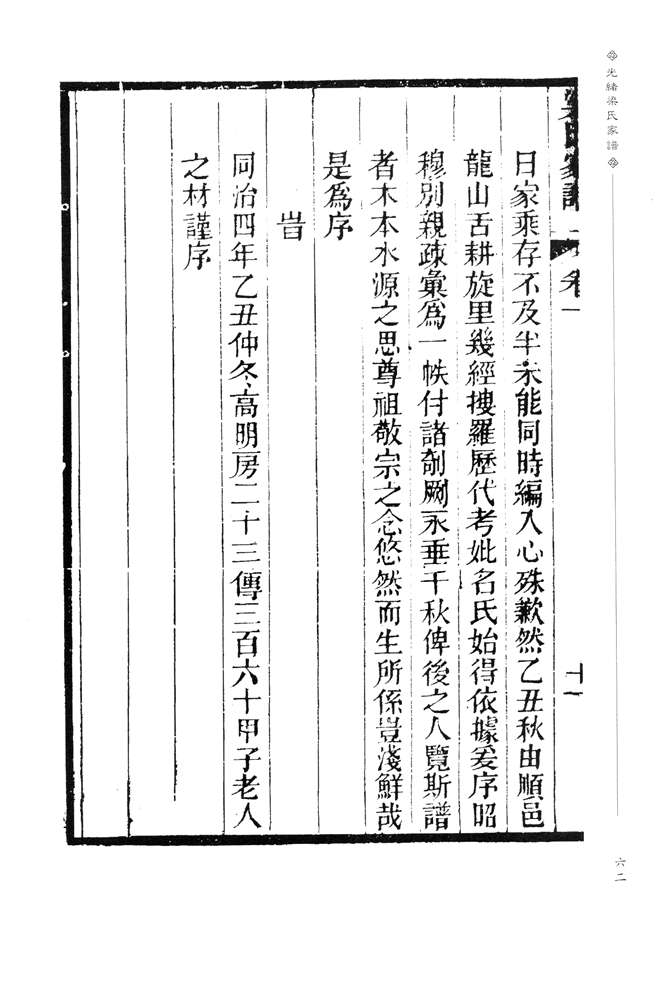 光緒梁氏家譜
梁氏家譜 卷一
十一
日家乘存不及半未能同時編入心殊歉然乙丑秋由順邑
龍山舌耕旋里幾經搜羅歷代考妣名氏始得依據爰序昭
穆別親疎彙爲一帙付諸剞劂永垂千秋俾後之人覽斯譜
者木本水源之思尊祖敬宗之念悠然而生所係豈淺鮮哉
是爲序
旹
同治四年乙丑仲冬高明房二十三傳三百六十甲子老人
之材謹序
六二